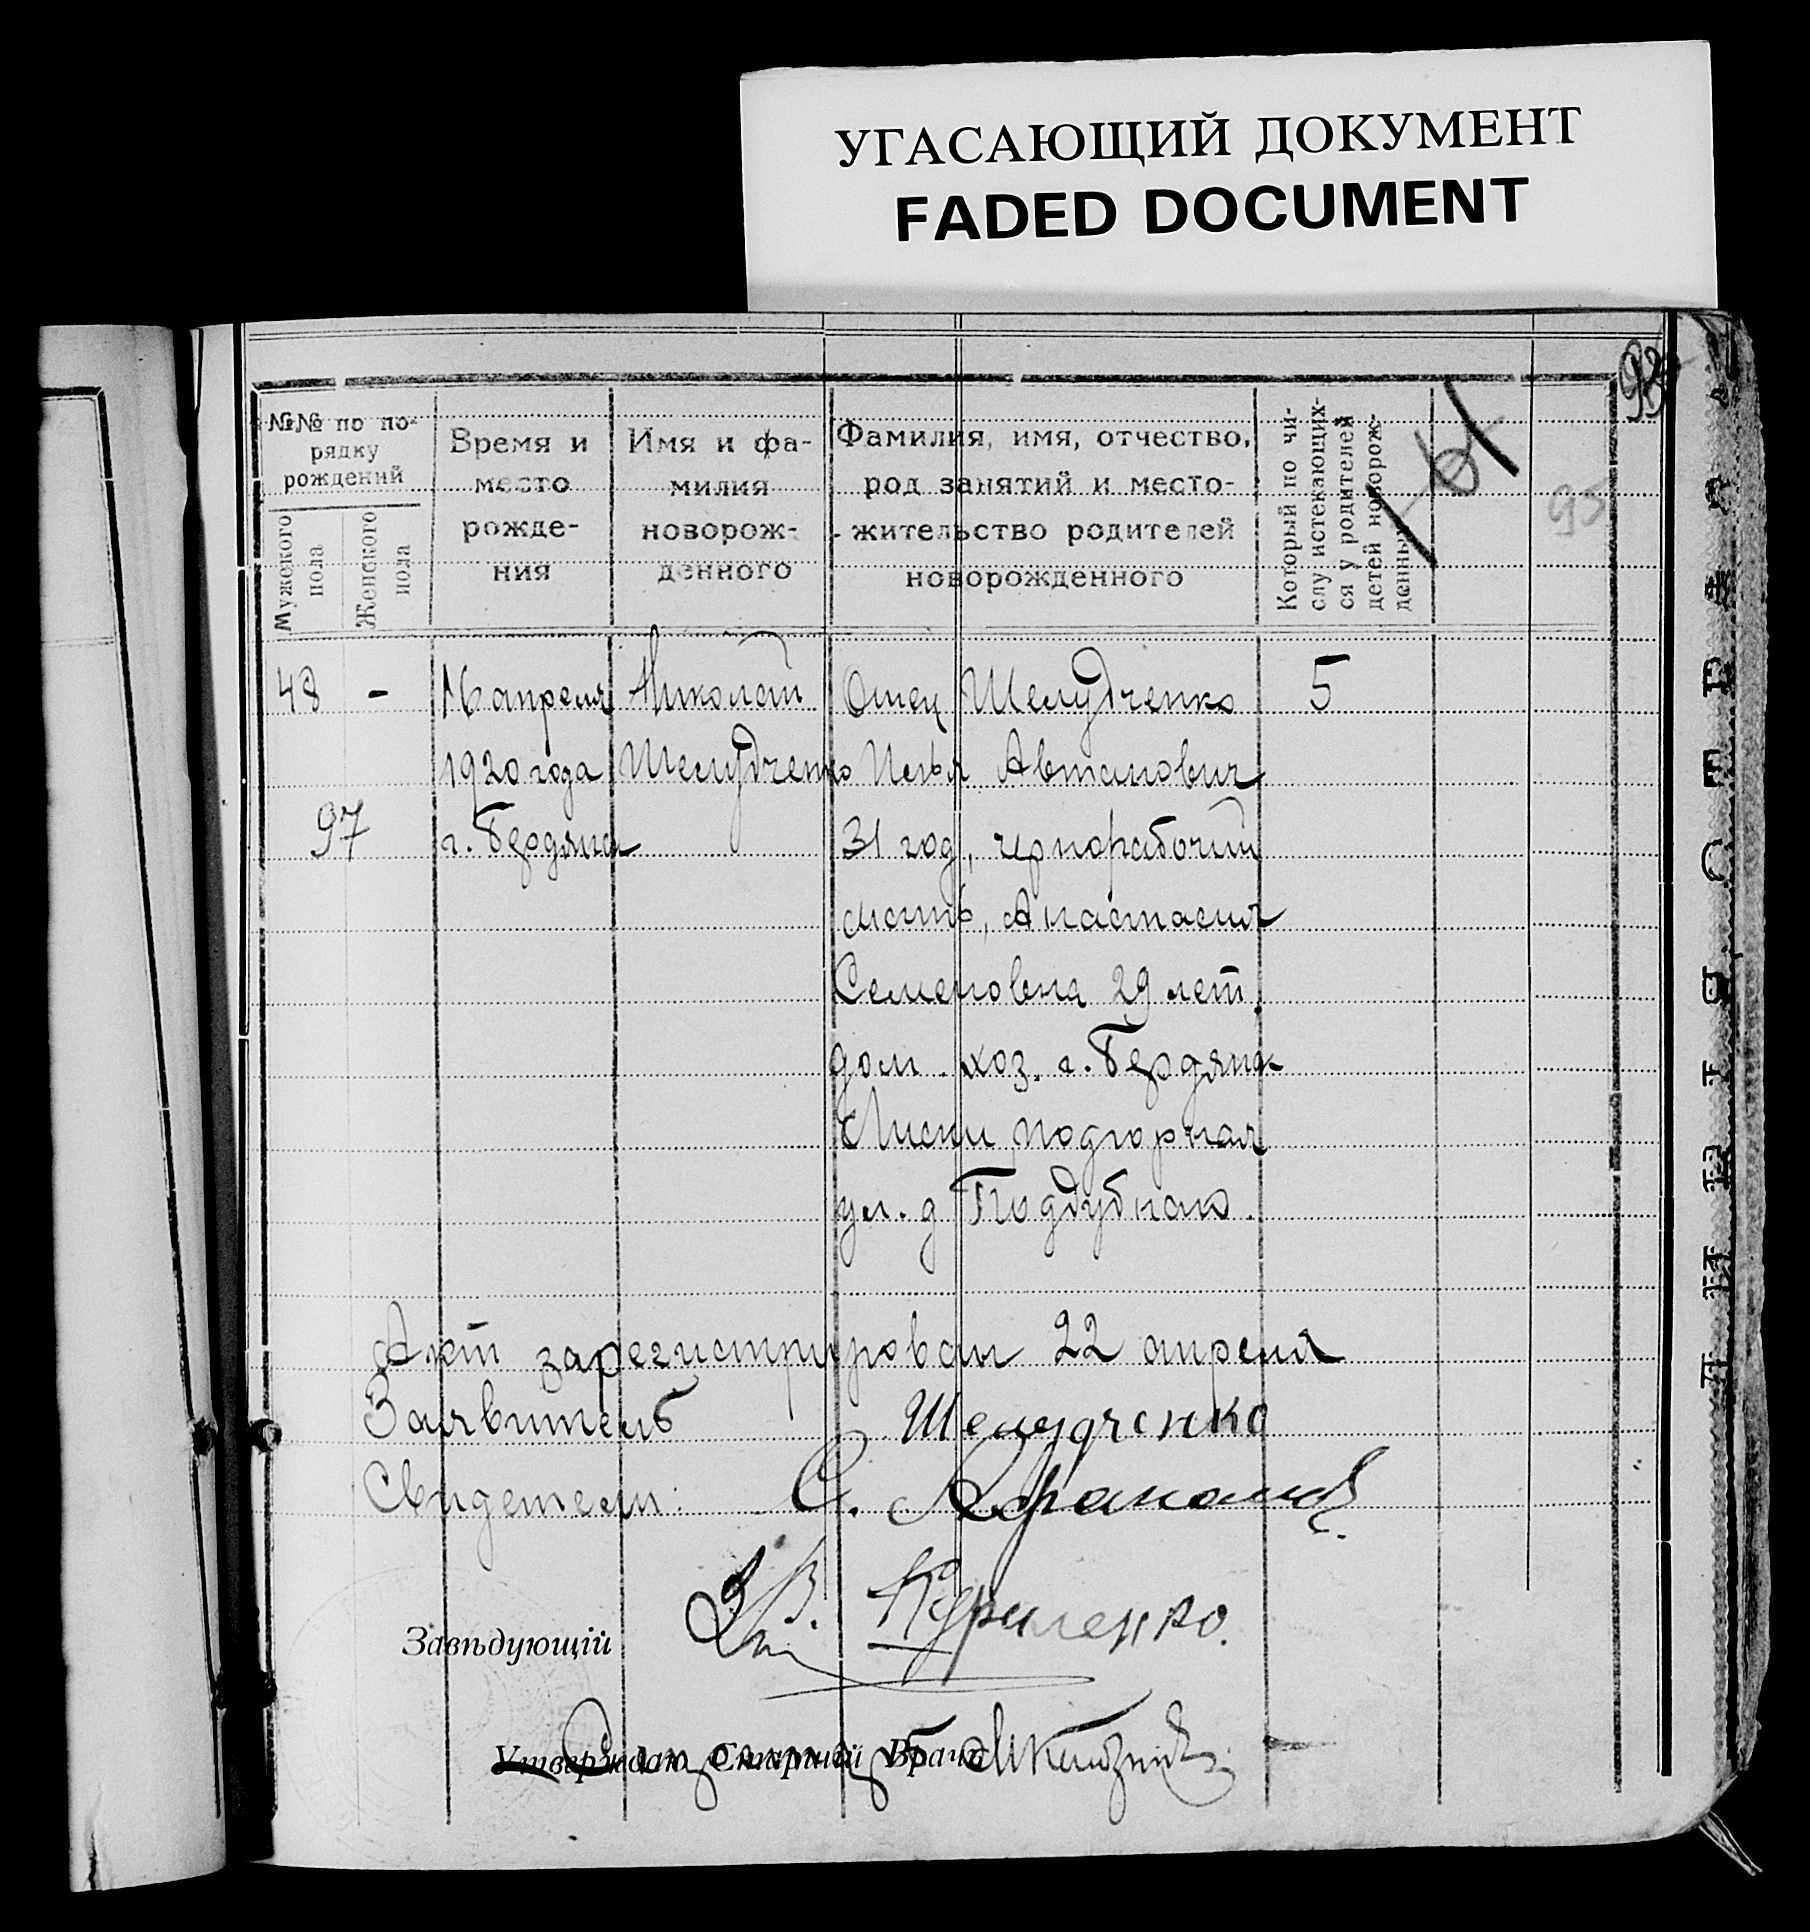 УГАСАЮЩИЙ ДОКУМЕНТ
FADED DOCUMENT
93
95
№№ по по-
рядку
рождений
Мужского
пола
Женского
пола
Время и
место
рожде-
ния
Имя и фа-
милия
новорож-
денного
Фамилия, имя, отчество,
род занятий и место-
жительство родителей
новорожденного
Который по чи-
слу истекающих-
ся у родителей
детей новорож-
денный
48 - 16 апреля Николай Отец Шелудченко 5
1920 года Шелудченко Илья Автанович
97 г. Бердянск 31 год, чернорабочий
мать, Анастасия
Семеновна 29 лет
дом. хоз. г. Бердянск
Лиски подгорная
ул. д Поддубнаго.
Акт зарегистрирован 22 апреля
Заявитель Шелудченко
Свидетели: С.
Завѣдующій
Утверждаю Старшій Врачъ